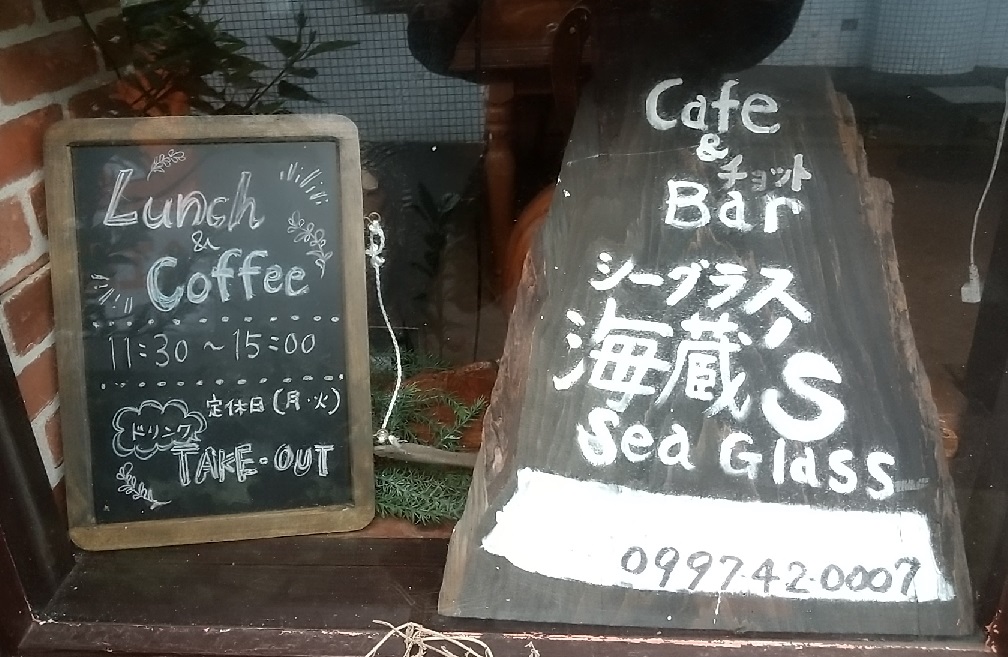 Lunch
&
Coffee
11:30 ~ 15:00
定休日(月・火)
ドリンク
TAKE・OUT
Cafe
&
チョット
Bar
シーグラス
海蔵'S
Sea Glass
0997-42-0007